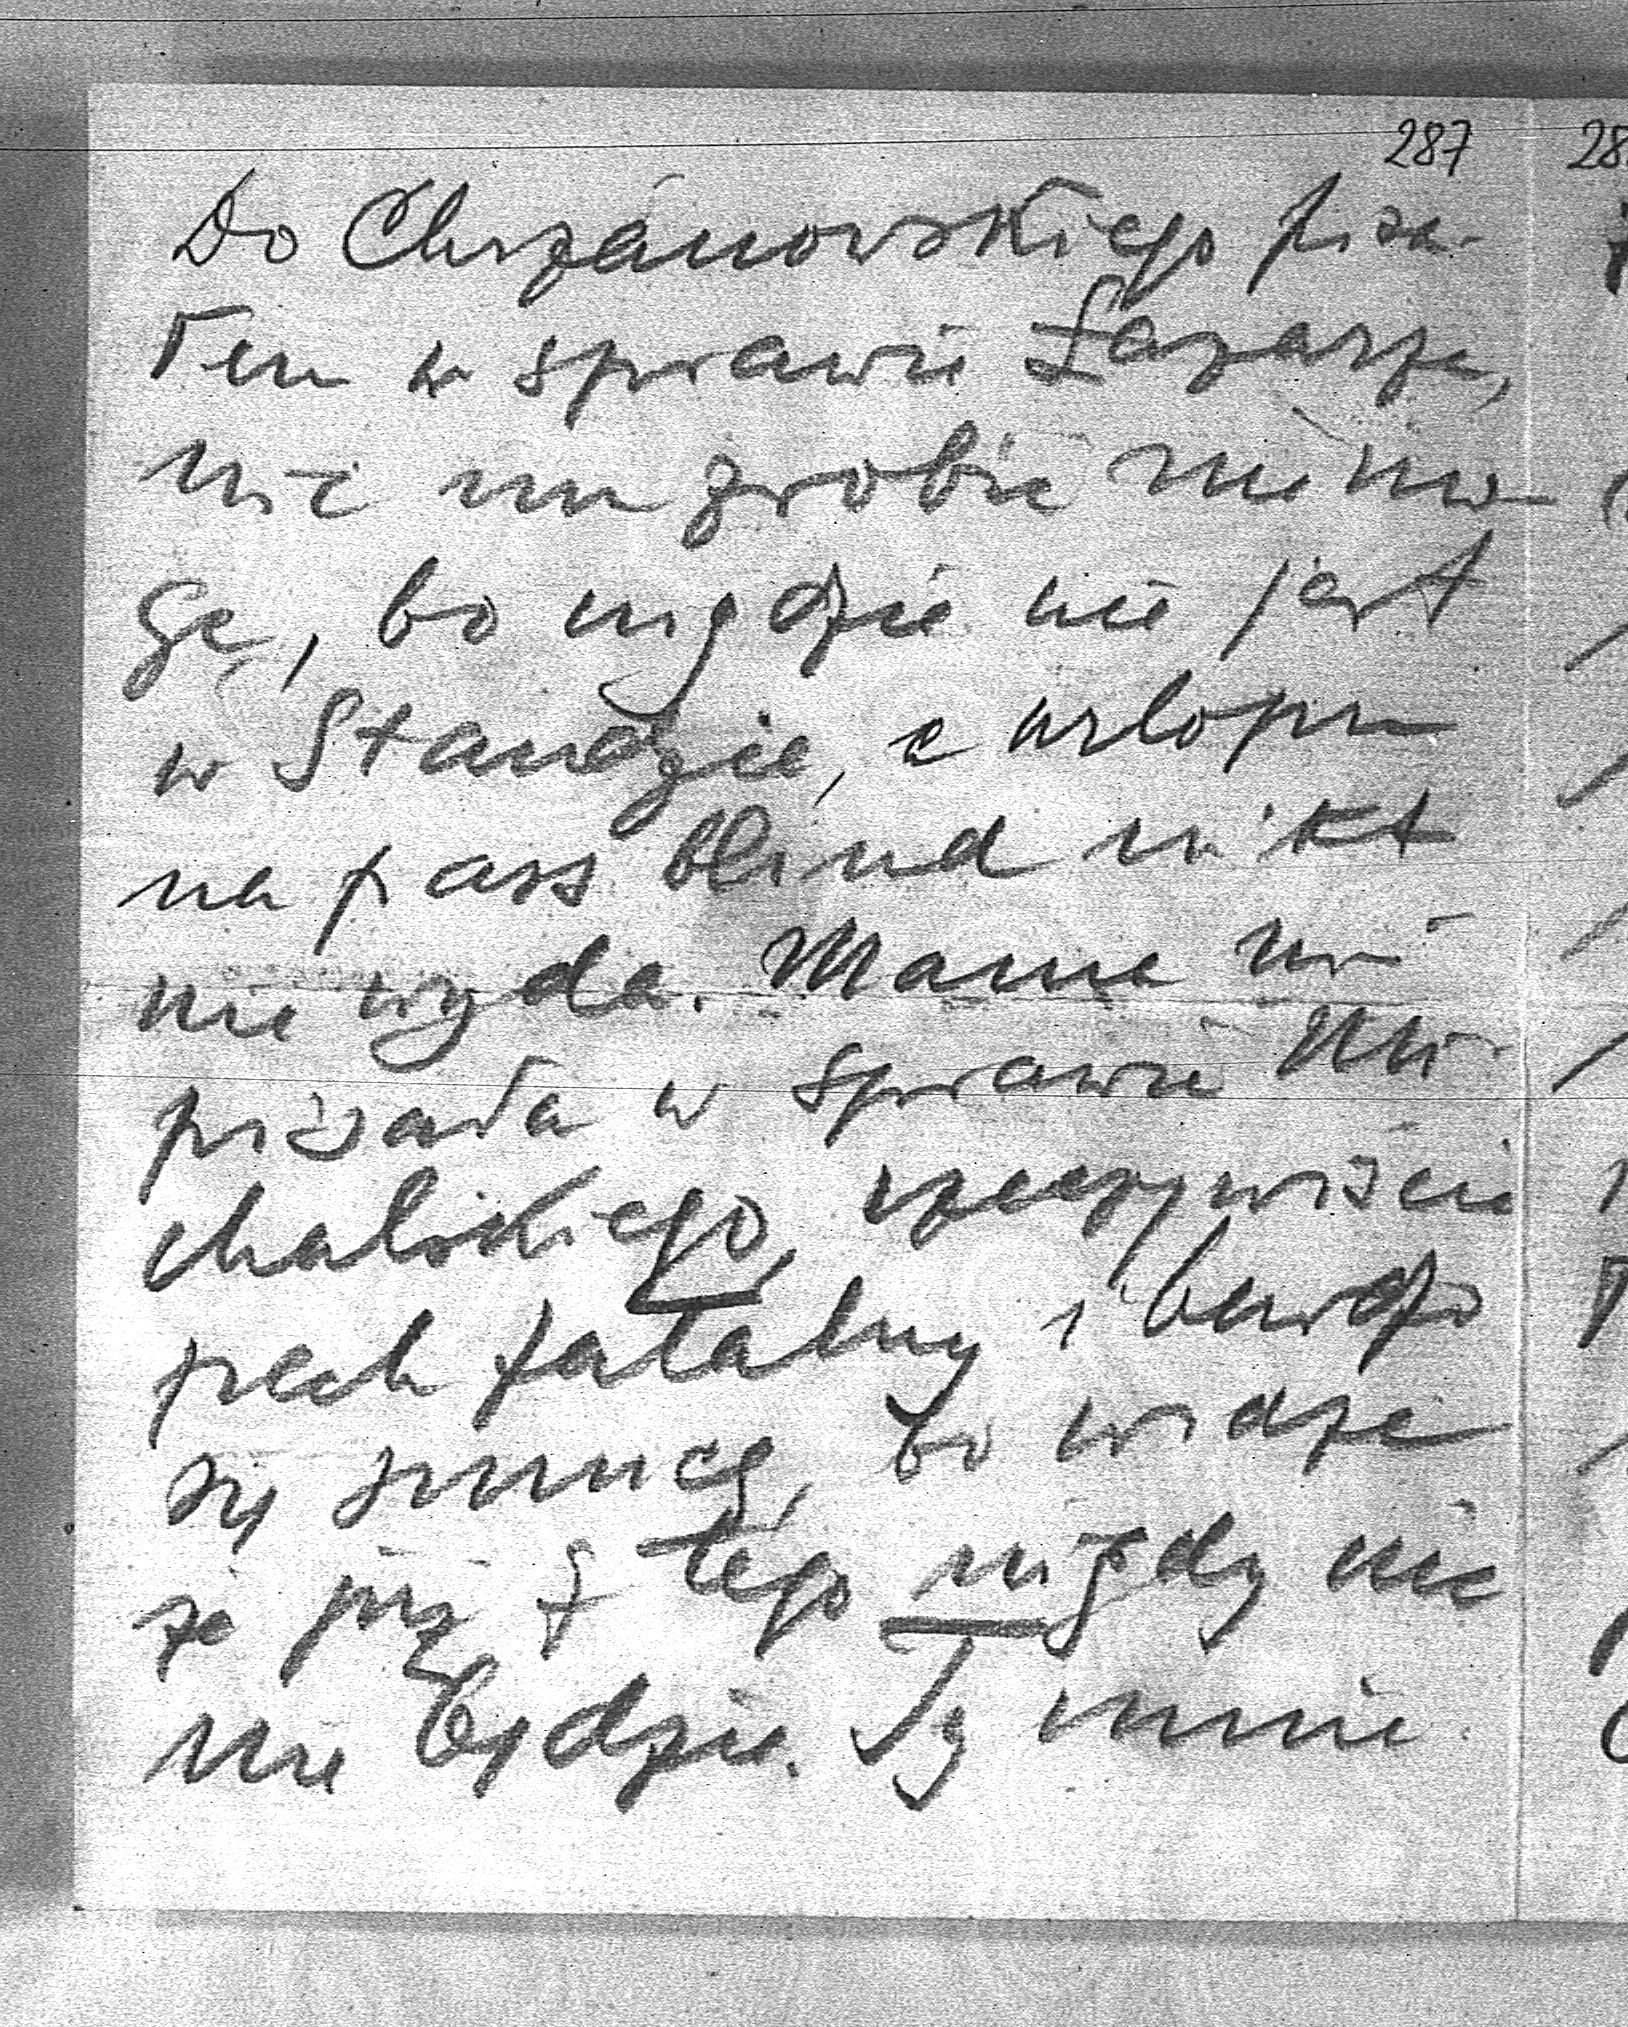 287
Do Chrzanowskiego pisa-
łem w sprawie Łazarza,
nic mu zrobić nie mo
gę, bo nigdzie nie jest
w Standzie, a urlopu
na pass blind nikt
nie wyda. Mama mi
pisała w sprawie Mi-
chalskiego, rzeczywiście
pech fatalny i bardzo
się smucę, bo widzę
że już z tego nigdy nic
nie będzie. Ty mnie